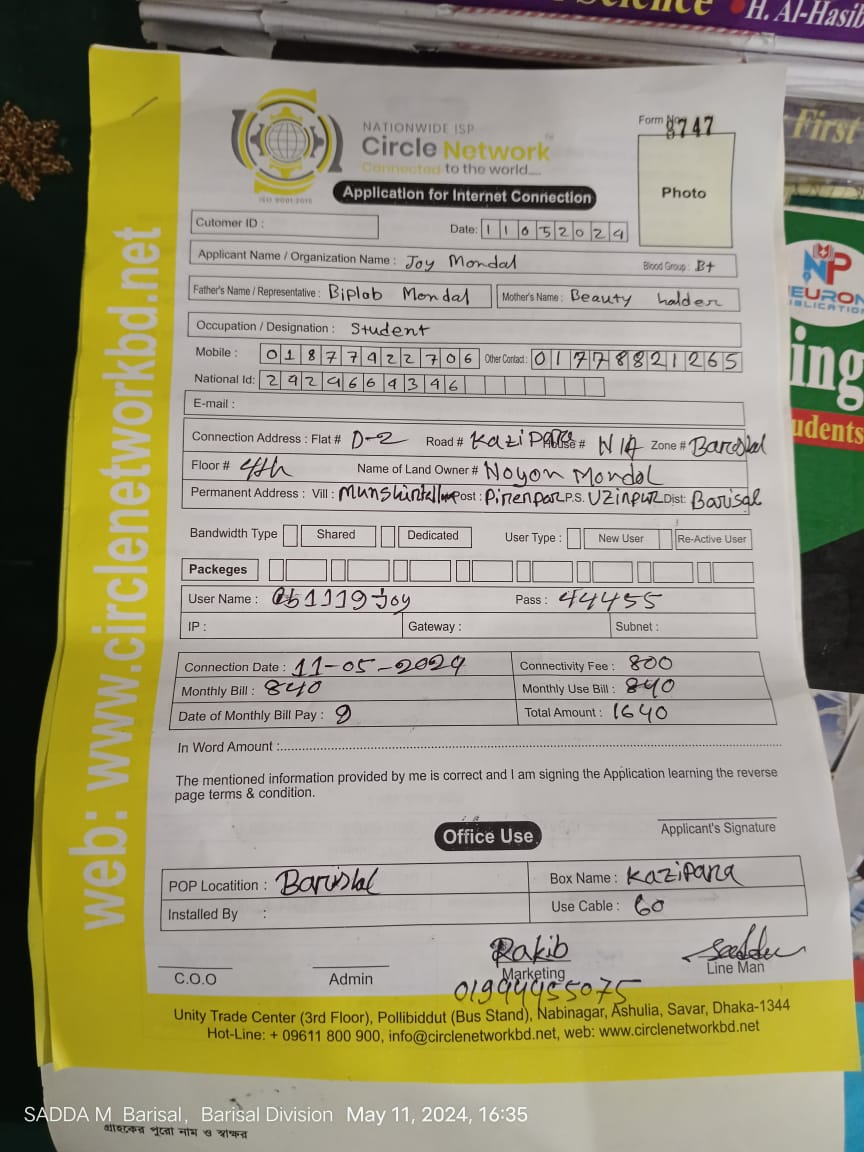 H. Al-Hasib
First
NP
ing
udents
web: www.circlenetworkbd.net
NATIONWIDE ISP
Circle Network
Connected to the world....
ISO 9001:2015
Form No 8747
Photo
Application for Internet Connection
Cutomer ID :
Date: 11052024
Applicant Name / Organization Name : Joy Mondal Blood Group : B+
Father's Name / Representative : Biplob Mondal Mother's Name : Beauty halder
Occupation / Designation : Student
Mobile : 01877922706 Other Contact : 01778821265
National Id: 2924664346
E-mail :
Connection Address : Flat # D-2 Road # Kazi Para House # N/A Zone # Barishal
Floor # 4th Name of Land Owner # Noyon Mondol
Permanent Address : Vill : Post : Pirerpar P.S. Uzirpur Dist: Barisal
Bandwidth Type Shared Dedicated User Type : New User Re-Active User
Packeges
User Name : 1119joy Pass : 44455
IP : Gateway : Subnet :
Connection Date : 11-05-2024 Connectivity Fee : 800
Monthly Bill : 840 Monthly Use Bill : 840
Date of Monthly Bill Pay : 9 Total Amount : 1640
In Word Amount :
The mentioned information provided by me is correct and I am signing the Application learning the reverse
page terms & condition.
Applicant's Signature
Office Use
POP Locatition : Barishal Box Name : Kazipara
Installed By : Use Cable : 60
Rakib
C.O.O Admin Marketing Line Man
01994955075
Unity Trade Center (3rd Floor), Pollibiddut (Bus Stand), Nabinagar, Ashulia, Savar, Dhaka-1344
Hot-Line: + 09611 800 900, info@circlenetworkbd.net, web: www.circlenetworkbd.net
SADDA M Barisal, Barisal Division May 11, 2024, 16:35
গ্রাহকের পুরো নাম ও স্বাক্ষর